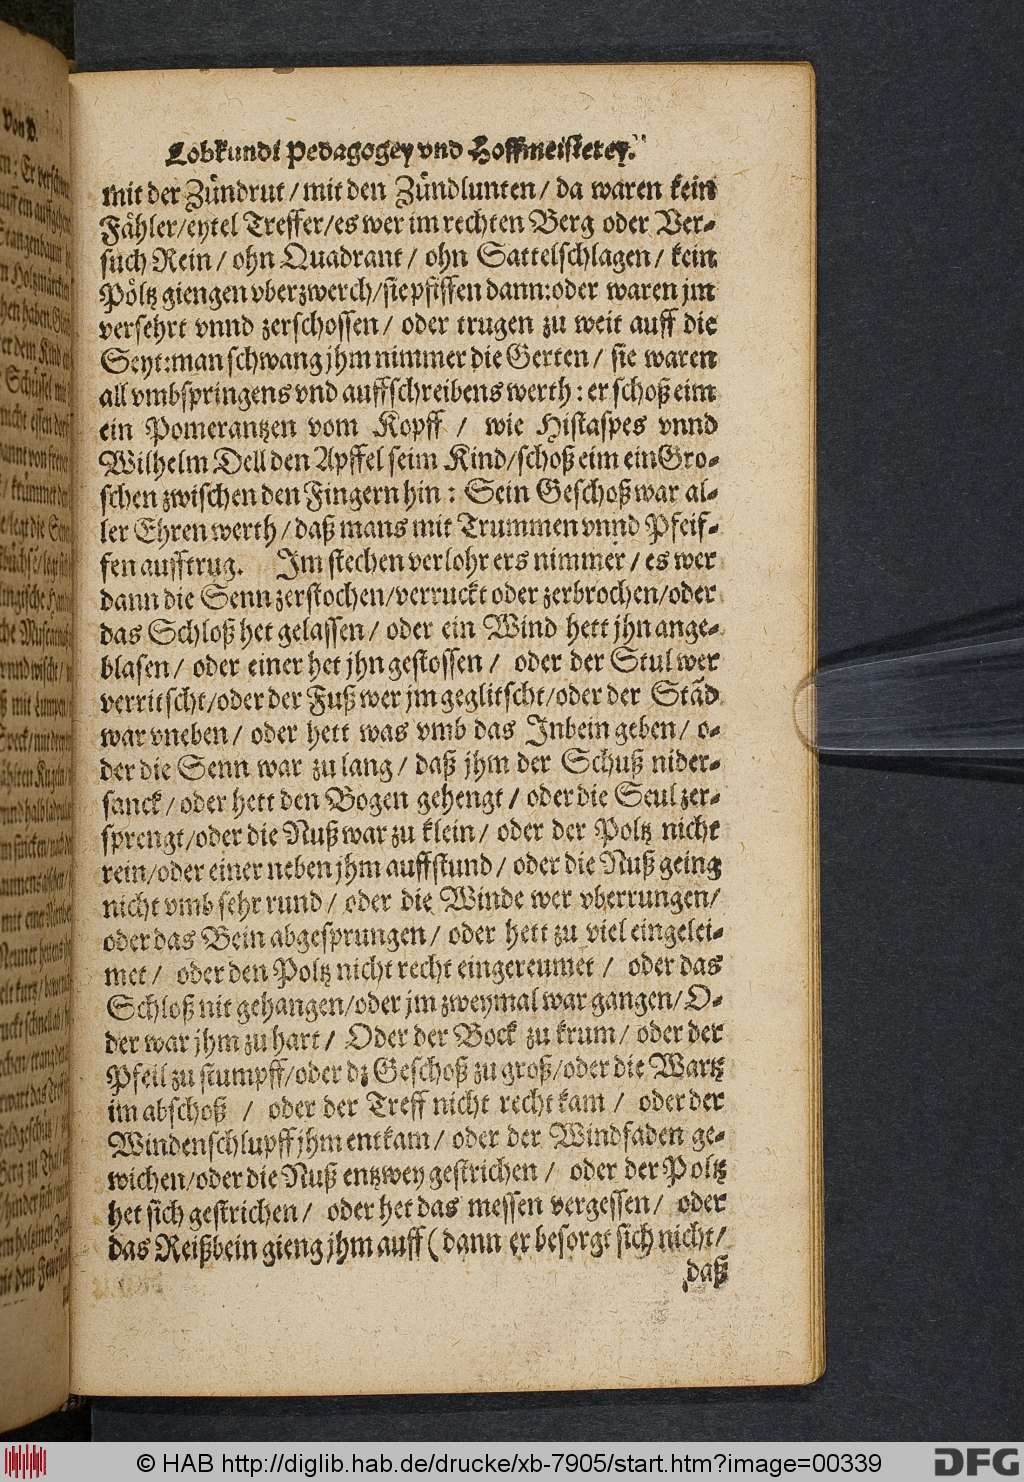 Lobkundi Pedagogey vnd Hoffmeisterey.
mit der Zündrut / mit den Zündlunten / da waren kein
Fåhler/eytel Treffer/es wer im rechten Berg oder Ver-
such Rein / ohn Quadrant / ohn Sattelschlagen / kein
Pöltz giengen vberzwerch/sie pfiffen dann:oder waren jm
versehrt vnnd zerschossen / oder trugen zu weit auff die
Seyt:man schwang jhm nimmer die Gerten / sie waren
all vmbspringens vnd auffschreibens werth : er schoß eim
ein Pomerantzen vom Kopff / wie Histaspes vnnd
Wilhelm Dell den Apffel seim Kind/schoß eim ein Gro-
schen zwischen den Fingern hin : Sein Geschoß war al-
ler Ehren werth / daß mans mit Trummen vnnd Pfeif-
fen aufftrug. Im stechen verlohr ers nimmer / es wer
dann die Senn zerstochen/verruckt oder zerbrochen/oder
das Schloß het gelassen / oder ein Wind hett jhn ange-
blasen / oder einer het jhn gestossen / oder der Stul wer
verritscht/oder der Fuß wer jm geglitscht/oder der Stãd
war vneben / oder hett was vmb das Inbein geben / o-
der die Senn war zu lang / daß jhm der Schuß nider-
sanck / oder hett den Bogen gehengt / oder die Seul zer-
sprengt/oder die Nuß war zu klein / oder der Poltz nicht
rein/oder einer neben jhm auffstund / oder die Nuß geing
nicht vmb sehr rund / oder die Winde wer vberrungen/
oder das Bein abgesprungen / oder hett zu viel eingelei-
met / oder den Poltz nicht recht eingereumet / oder das
Schloß nit gehangen/oder jm zweymal war gangen/O-
der war jhm zu hart / Oder der Bock zu krum / oder der
Pfeil zu stumpff/oder dz Geschoß zu groß/oder die Wartz
im abschoß / oder der Treff nicht recht kam / oder der
Windenschlupff jhm entkam / oder der Windfaden ge-
wichen/oder die Nuß entzwey gestrichen / oder der Poltz
het sich gestrichen / oder het das messen vergessen / oder
das Reißbein gieng jhm auff (dann er besorgt sich nicht/
daß
© HAB http://diglib.hab.de/drucke/xb-7905/start.htm?image=00339
DFG